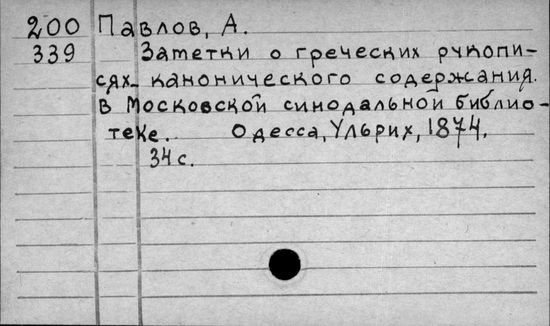 200 Павлов, А.
339 Заметки о греческих рукопи-
сях канонического содержания.
в Московской синодальной библио-
теке. Одесса, Ульрих, 1874.
34 с.